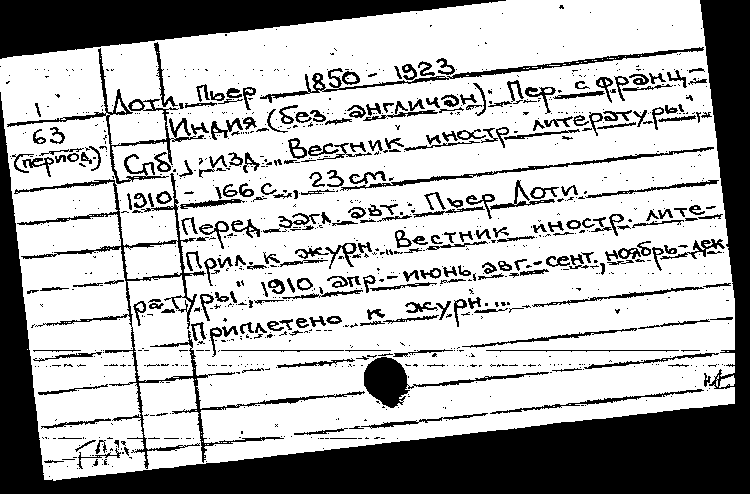 1
63
(период.)
Лоти, Пьер, 1850 - 1923
Индия (без англичан): Пер. с франц. -
Спб.; изд. "Вестник иностр. литературы",
1910 - 166 с., 23 см.
Перед загл. авт.: Пьер Лоти.
Прил. к журн. "Вестник иностр. лите-
ратуры", 1910, апр.-июнь, авг.-сент., ноябрь-дек.
Приплетено к журн....